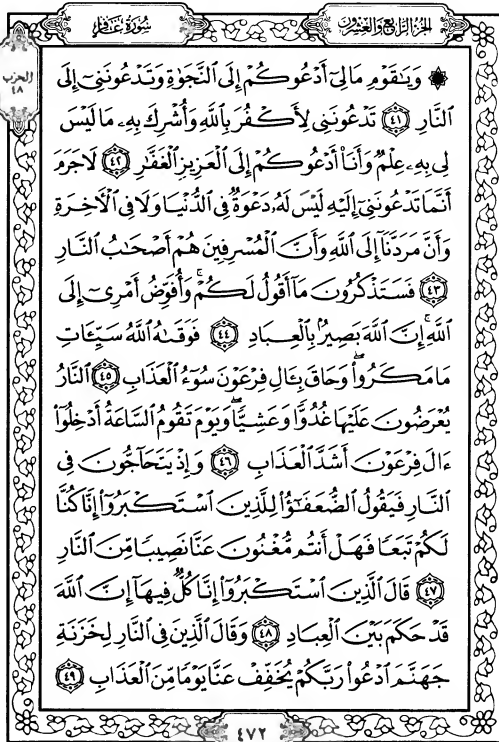 سورة غافر
الجزء الرابع والعشرون
الحزب
٤٨
۞ وَيَٰقَوْمِ مَا لِىٓ أَدْعُوكُمْ إِلَى ٱلنَّجَوٰةِ وَتَدْعُونَنِىٓ إِلَى
ٱلنَّارِ ٤١ تَدْعُونَنِى لِأَكْفُرَ بِٱللَّهِ وَأُشْرِكَ بِهِۦ مَا لَيْسَ
لِى بِهِۦ عِلْمٌ وَأَنَا۠ أَدْعُوكُمْ إِلَى ٱلْعَزِيزِ ٱلْغَفَّٰرِ ٤٢ لَا جَرَمَ
أَنَّمَا تَدْعُونَنِىٓ إِلَيْهِ لَيْسَ لَهُۥ دَعْوَةٌ فِى ٱلدُّنْيَا وَلَا فِى ٱلْءَاخِرَةِ
وَأَنَّ مَرَدَّنَآ إِلَى ٱللَّهِ وَأَنَّ ٱلْمُسْرِفِينَ هُمْ أَصْحَٰبُ ٱلنَّارِ
٤٣ فَسَتَذْكُرُونَ مَآ أَقُولُ لَكُمْ ۚ وَأُفَوِّضُ أَمْرِىٓ إِلَى
ٱللَّهِ ۚ إِنَّ ٱللَّهَ بَصِيرٌۢ بِٱلْعِبَادِ ٤٤ فَوَقَىٰهُ ٱللَّهُ سَيِّـَٔاتِ
مَا مَكَرُوا۟ ۖ وَحَاقَ بِـَٔالِ فِرْعَوْنَ سُوٓءُ ٱلْعَذَابِ ٤٥ ٱلنَّارُ
يُعْرَضُونَ عَلَيْهَا غُدُوًّا وَعَشِيًّا ۖ وَيَوْمَ تَقُومُ ٱلسَّاعَةُ أَدْخِلُوٓا۟
ءَالَ فِرْعَوْنَ أَشَدَّ ٱلْعَذَابِ ٤٦ وَإِذْ يَتَحَآجُّونَ فِى
ٱلنَّارِ فَيَقُولُ ٱلضُّعَفَٰٓؤُا۟ لِلَّذِينَ ٱسْتَكْبَرُوٓا۟ إِنَّا كُنَّا
لَكُمْ تَبَعًا فَهَلْ أَنتُم مُّغْنُونَ عَنَّا نَصِيبًا مِّنَ ٱلنَّارِ
٤٧ قَالَ ٱلَّذِينَ ٱسْتَكْبَرُوٓا۟ إِنَّا كُلٌّ فِيهَآ إِنَّ ٱللَّهَ
قَدْ حَكَمَ بَيْنَ ٱلْعِبَادِ ٤٨ وَقَالَ ٱلَّذِينَ فِى ٱلنَّارِ لِخَزَنَةِ
جَهَنَّمَ ٱدْعُوا۟ رَبَّكُمْ يُخَفِّفْ عَنَّا يَوْمًا مِّنَ ٱلْعَذَابِ ٤٩
٤٧٢